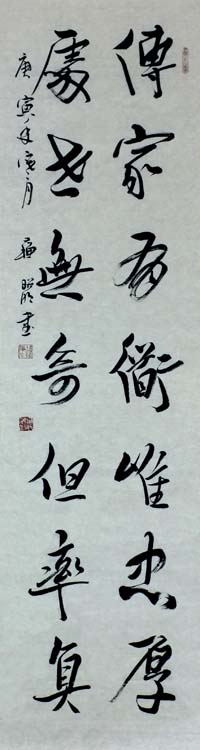 傳家有衜惟忠厚
處世無奇但率真
庚寅年寒月